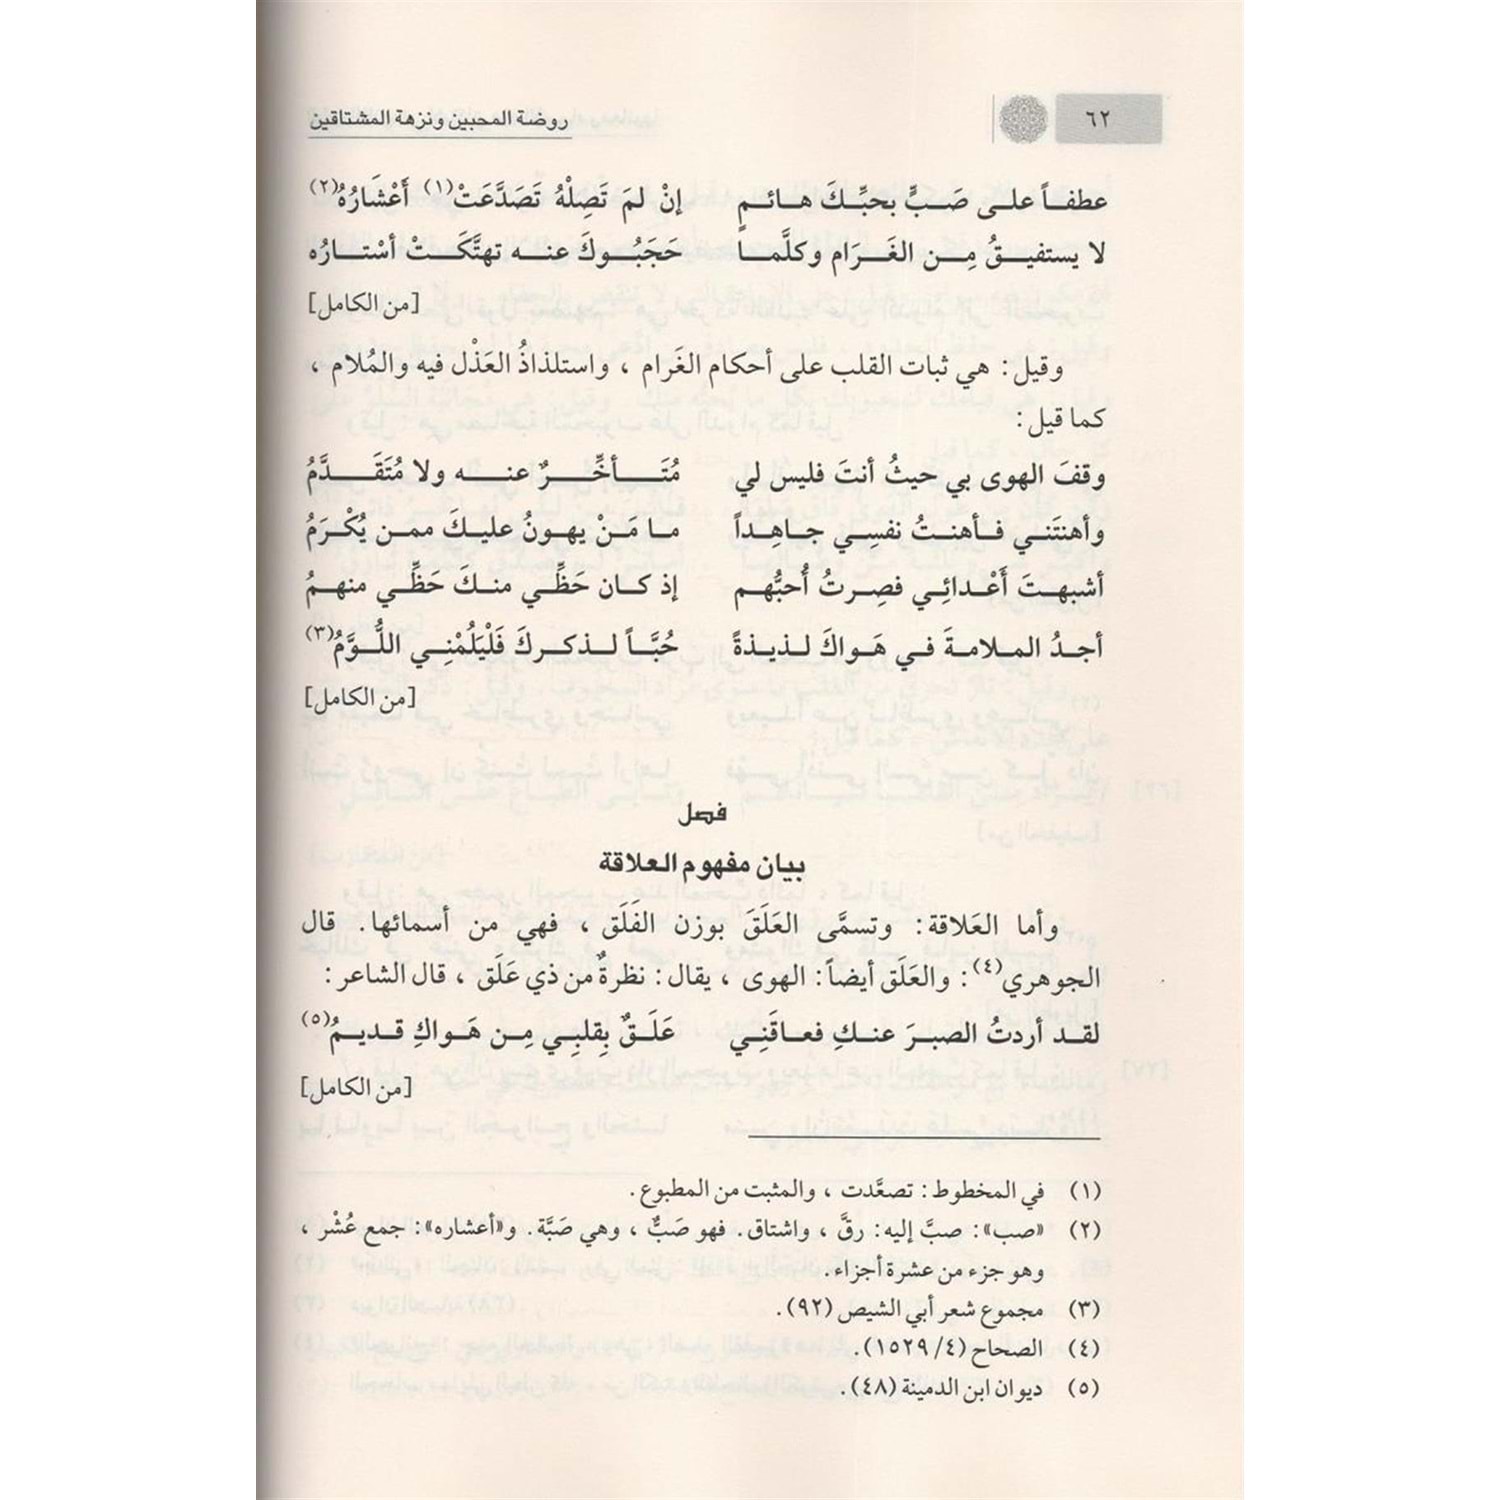 ٦٢
روضة المحبين ونزهة المشتاقين
عطفاً على صَبٍّ بحبِّكَ هائمٍ إنْ لمَ تَصِلْهُ تَصَدَّعَتْ(١) أَعْشَارُهُ(٢)
لا يستفيقُ مِن الغَرَام وكلَّما حَجَبُوكَ عنه تهتَّكَتْ أسْتارُه
[من الكامل]
وقيل: هي ثبات القلب على أحكام الغَرام ، واستلذاذُ العَذْل فيه والمُلام ،
كما قيل:
وقفَ الهوى بي حيثُ أنتَ فليس لي مُتَأخِّرٌ عنه ولا مُتَقَدَّمُ
وأهنتَني فأهنتُ نفسِي جاهِداً ما مَنْ يهونُ عليكَ ممن يُكْرَمُ
أشبهتَ أَعْدائِي فصِرتُ أُحبُّهم إذ كان حَظِّي منكَ حَظِّي منهمُ
أجدُ الملامةَ في هَواكَ لذيذةً حُبَّاً لذكركَ فَلْيَلُمْنِي اللُّوَّمُ(٣)
[من الكامل]
فصل
بيان مفهوم العلاقة
وأما العَلاقة: وتسمَّى العَلَقَ بوزن الفَلَق ، فهي من أسمائها. قال
الجوهري(٤): والعَلَق أيضاً: الهوى ، يقال: نظرةٌ من ذي عَلَق ، قال الشاعر:
لقد أردتُ الصبرَ عنكِ فعاقَنِي عَلَقٌ بِقلبِي مِن هَواكِ قديمُ(٥)
[من الكامل]
(١) في المخطوط: تصعَّدت ، والمثبت من المطبوع.
(٢) «صب»: صبَّ إليه: رقَّ ، واشتاق. فهو صَبٌّ ، وهي صَبَّة. و«أعشاره»: جمع عُشْر ،
وهو جزء من عشرة أجزاء.
(٣) مجموع شعر أبي الشيص (٩٢).
(٤) الصحاح (٤/ ١٥٢٩).
(٥) ديوان ابن الدمينة (٤٨).